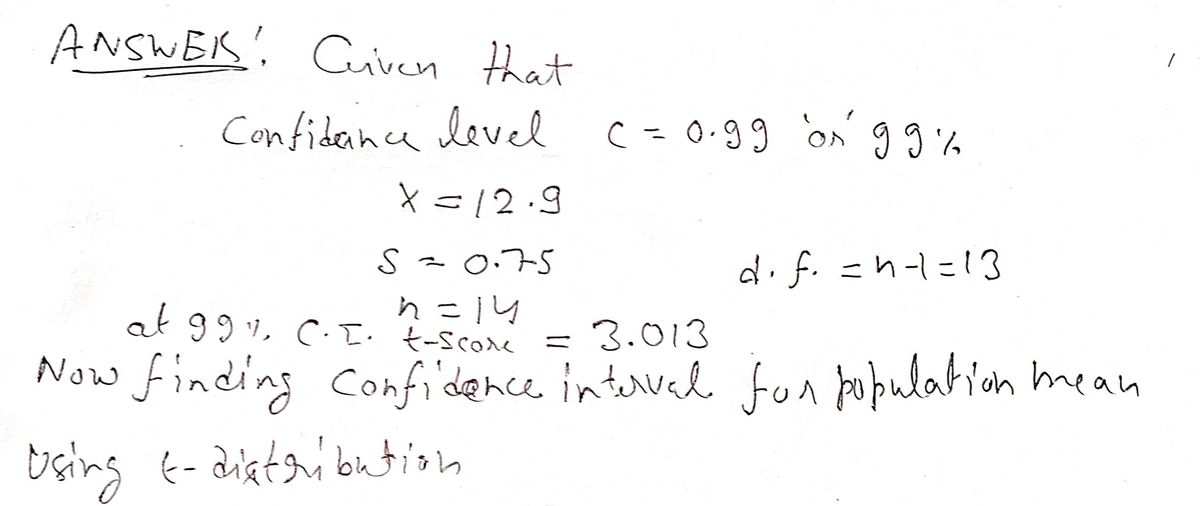 ANSWER: Given that
Confidence level C = 0.99 'or' 99%
X = 12.9
S = 0.75 d.f. = n-1 = 13
n = 14
at 99% C.I. t-score = 3.013
Now finding Confidence interval for population mean
Using t-distribution